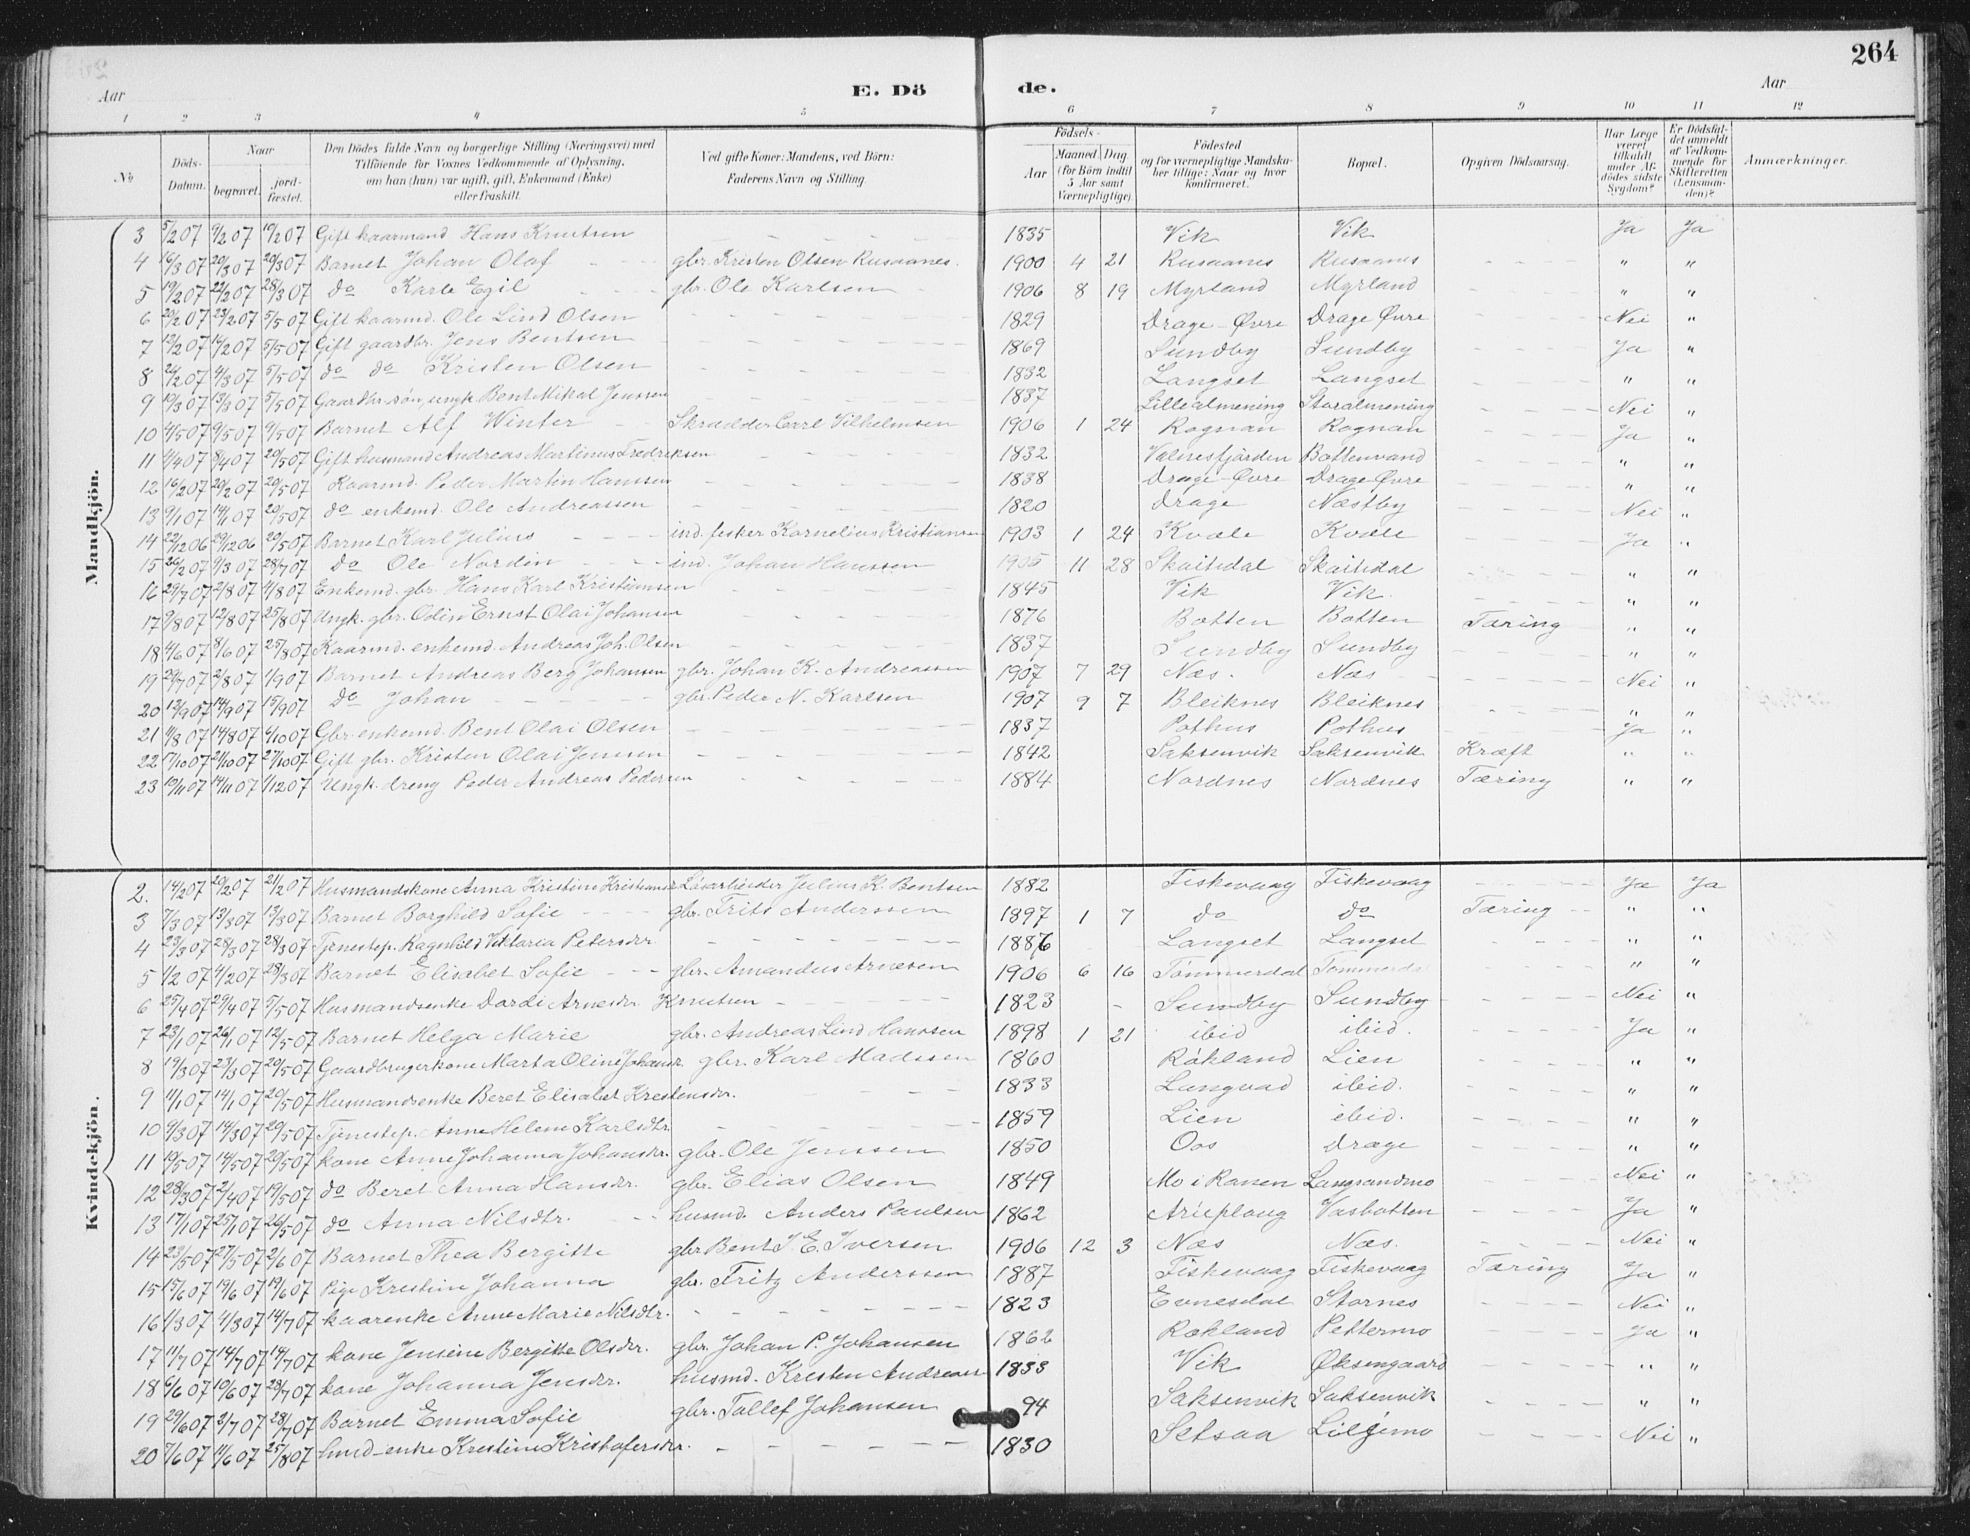 264
Aar E. Dö de. Aar
1 2 3 4 5 6 7 8 9 10 11 12
No Döds-Datum. Naar begravet. jord-fæstet. Den Dödes fulde Navn og borgerlige Stilling (Næringsvei) med Tilföiende for Voxnes Vedkommende af Oplysning, om han (hun) var ugift, gift, Enkemand (Enke) eller fraskilt. Ved gifte Koner: Mandens, ved Börn: Faderens Navn og Stilling. Födsels- Aar Maaned. Dag (for Börn indtil 5 Aar samt Værnepligtige). Födested og for værnepligtige Mandskaber tillige: Naar og hvor konfirmeret. Bopæl. Opgiven Dödsaarsag. Har Læge været tilkaldt under Afdödes sidste Sygdom? Er Dödsfaldet anmeldt af Vedkommende for Skifteretten (Lensmanden)? Anmærkninger.
Mandkjön.
3 5/2 07 9/2 07 19/2 07 Gift kaarmand Hans Knutsen 1835 Vik Vik Ja Ja
4 16/3 07 20/3 07 20/3 07 Barnet Johan Olaf gbr. Kristen Olsen Rusaanes. 1900 4 21 Rusaanes Rusaanes " "
5 19/2 07 22/2 07 28/3 07 do Karle Egil gbr. Ole Karlsen 1906 8 19 Myrland Myrland " "
6 20/2 07 23/2 07 5/5 07 Gift kaarmd. Ole Lind Olsen 1829 Drage-Øvre Drage Øvre Nei "
7 12/2 07 16/2 07 5/5 07 Gift gaardbr. Jens Bentsen 1869 Sundby Sundby Ja "
8 26/2 07 4/3 07 5/5 07 do do Kristen Olsen 1832 Langset Langset " "
9 10/3 07 13/3 07 5/5 07 Gaardbr. søn, ungk. Bent Mikal Jenssen 1837 Lillealmening Storalmening Nei "
10 4/5 07 9/5 07 9/5 07 Barnet Alf Winter Skrædder Carl Vilhelmsen 1906 1 24 Rognan Rognan Ja "
11 4/4 07 8/4 07 20/5 07 Gift husmand Andreas Martinus Fredriksen 1832 Valnesfjorden Bottenvand " "
12 16/2 07 20/2 07 20/5 07 Kaarmd. Peder Martin Hansen 1838 Drage-Øvre Drage-Øvre " "
13 9/1 07 14/1 07 20/5 07 do enkemd. Ole Andreassen 1820 Drage Næstby Nei "
14 22/12 06 29/12 06 20/5 07 Barnet Karl Julius ind. fisker Kornelius Kristiansen 1903 1 24 Kvæle Kvæle Ja "
15 26/2 07 9/3 07 28/7 07 do Ole Nordin ind. Johan Hanssen 1905 11 28 Skaitidal Skaitidal " "
16 29/7 07 2/8 07 4/8 07 Enkemd. gbr. Hans Karl Kristiansen 1845 Vik Vik. " "
17 9/8 07 12/8 07 25/8 07 Ungk. gbr. Odin Ernst Olai Johansen 1876 Botten Botten Tæring " "
18 4/6 07 8/6 07 25/8 07 Kaarmd. enkemd. Andreas Joh. Olsen 1837 Sundby Sundby " "
19 29/7 07 2/8 07 1/9 07 Barnet Andreas Berg Johansen gbr. Johan K. Andreassen 1907 7 29 Næs. Næs Nei "
20 12/9 07 14/9 07 15/9 07 do Johan gbr. Peder N. Karlsen 1907 9 7 Bleiknes Bleiknes " "
21 9/8 07 14/8 07 6/10 07 Gbr. enkemd. Bent Olai Olsen 1837 Pothus Pothus Ja "
22 17/10 07 21/10 07 27/10 07 Gift gbr. Kristen Olai Jensen 1842 Saksenvik Saksenvik Kræft " "
23 10/11 07 14/11 07 1/12 07 Ungk. dreng Peder Andreas Pedersen 1884 Nordnes Nordnes Tæring " "
Kvindekjön.
2. 14/2 07 20/2 07 21/2 07 Husmandskone Anna Kristine Kristiansdr. Løsarbeider Julius K. Bentsen 1882 Fiskevaag Fiskevaag Ja Ja
3 7/3 07 13/3 07 13/3 07 Barnet Borghild Sofie gbr. Frits Anderssen 1897 1 7 do do Tæring " "
4 23/3 07 28/3 07 28/3 07 Tjenestep. Ragnhild Viktoria Petersdr. 1886 Langset Langset " "
5 1/2 07 4/2 07 28/3 07 Barnet Elisabet Sofie gbr. Amandus Arnesen 1906 6 16 Tømmerdal Tømmerdal " "
6 25/4 07 29/4 07 5/5 07 Husmandsenke Dordi Arnesdr. Knutsen 1823 Sundby Sundby Nei "
7 23/1 07 26/1 07 12/5 07 Barnet Helga Marie gbr. Andreas Lind Hanssen 1898 1 21 ibid ibid. Ja "
8 19/3 07 23/3 07 20/5 07 Gaardbrugerkone Marta Oline Johansdr. gbr. Karl Madssen 1860 Røkland Lien " "
9 11/1 07 14/1 07 20/5 07 Husmandsenke Beret Elisabet Krestensdr. 1833 Lungvad ibid. " "
10 9/3 07 14/3 07 20/5 07 Tjenestep. Anne Helene Karlsdtr. 1859 Lien ibid. " "
11 10/5 07 14/5 07 20/5 07 kone Anne Johanna Johansdr. gbr. Ole Jenssen 1850 Oos Drage " "
12 28/3 07 2/4 07 19/5 07 do Beret Anna Hansdr. gbr. Elias Olsen 1849 Mo i Ranen Langrandmo Nei "
13 17/1 07 25/1 07 26/5 07 do Anna Nilsdtr. husmd. Anders Paulsen 1862 Arieplaug Vasbotten Ja "
14 23/5 07 27/5 07 2/6 07 Barnet Thea Bergitte gbr Bent J. E. Iversen 1906 12 3 Næs Næs. Nei "
15 15/6 07 19/6 07 19/6 07 Pige Kristine Johanna gbr. Fritz Anderssen 1887 Fiskevaag Fiskevaag Tæring Ja "
16 1/3 07 4/3 07 14/7 07 kaarenke Anne Marie Nilsdtr. 1823 Evnesdal Stornes Nei "
17 11/7 07 14/7 07 14/7 07 kone Jensine Bergitte Olsdr. gbr. Johan P. Johansen 1862 Røkland Pettermo Ja "
18 6/6 07 10/6 07 28/7 07 kone Johanna Jensdr. husmd. Kresten Andreasen 1833 Vik Øksengaard " "
19 29/6 07 3/7 07 28/7 07 Barnet Emma Sofie gbr. Tollef Johansen 94 Saksenvik Saksenvik " "
20 7/6 07 11/6 07 25/8 07 husd-enke Kristine Kristofersdr. 1830 Setsaa Liljemo Nei "